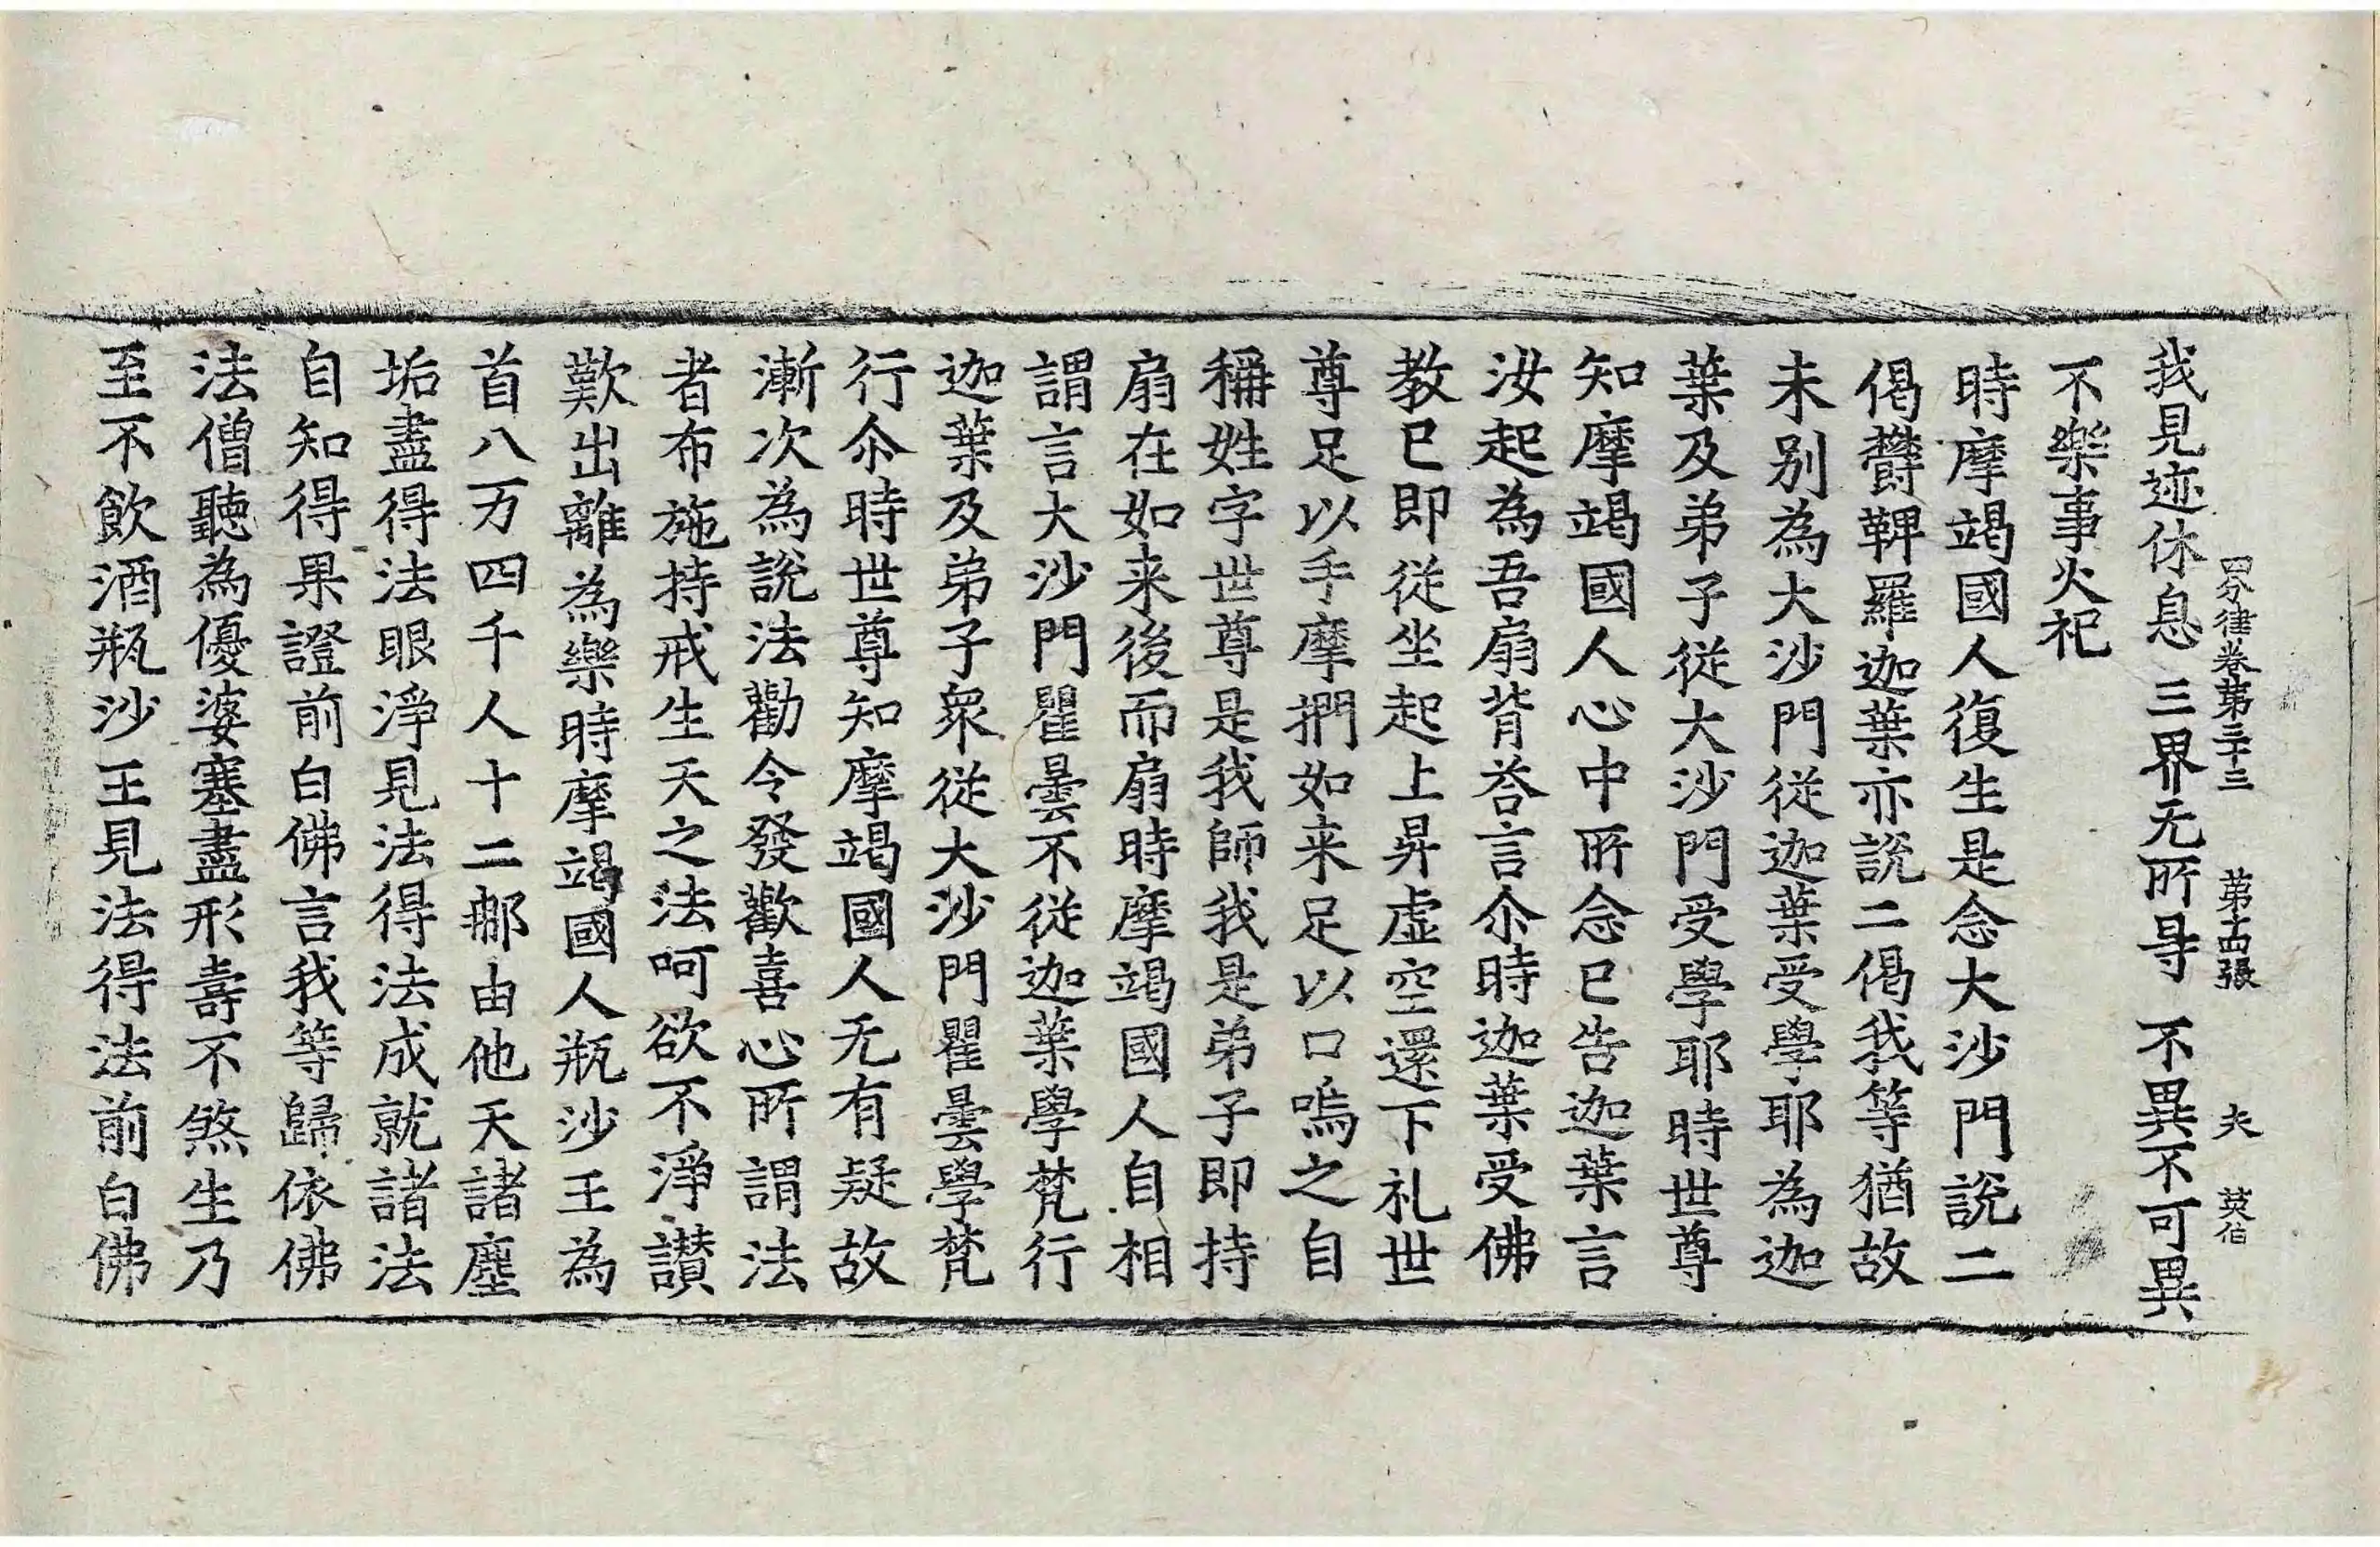 四分律卷第三十三　第十四張　夫　英伯
我見迹休息　三界无所㝵　不異不可異
不樂事火祀
時摩竭國人復生是念大沙門說二
偈欝鞞羅迦葉亦說二偈我等猶故
未別為大沙門從迦葉受學耶為迦
葉及弟子從大沙門受學耶時世尊
知摩竭國人心中所念已告迦葉言
汝起為吾扇背荅言尒時迦葉受佛
教已即從坐起上昇虛空還下礼世
尊足以手摩捫如来足以口嗚之自
稱姓字世尊是我師我是弟子即持
扇在如来後而扇時摩竭國人自相
謂言大沙門瞿曇不從迦葉學梵行
迦葉及弟子衆從大沙門瞿曇學梵
行尒時世尊知摩竭國人无有疑故
漸次為說法勸令發歡喜心所謂法
者布施持戒生天之法呵欲不淨讃
歎出離為樂時摩竭國人瓶沙王為
首八万四千人十二那由他天諸塵
垢盡得法眼淨見法得法成就諸法
自知得果證前白佛言我等歸依佛
法僧聽為優婆塞盡形壽不煞生乃
至不飲酒瓶沙王見法得法前白佛